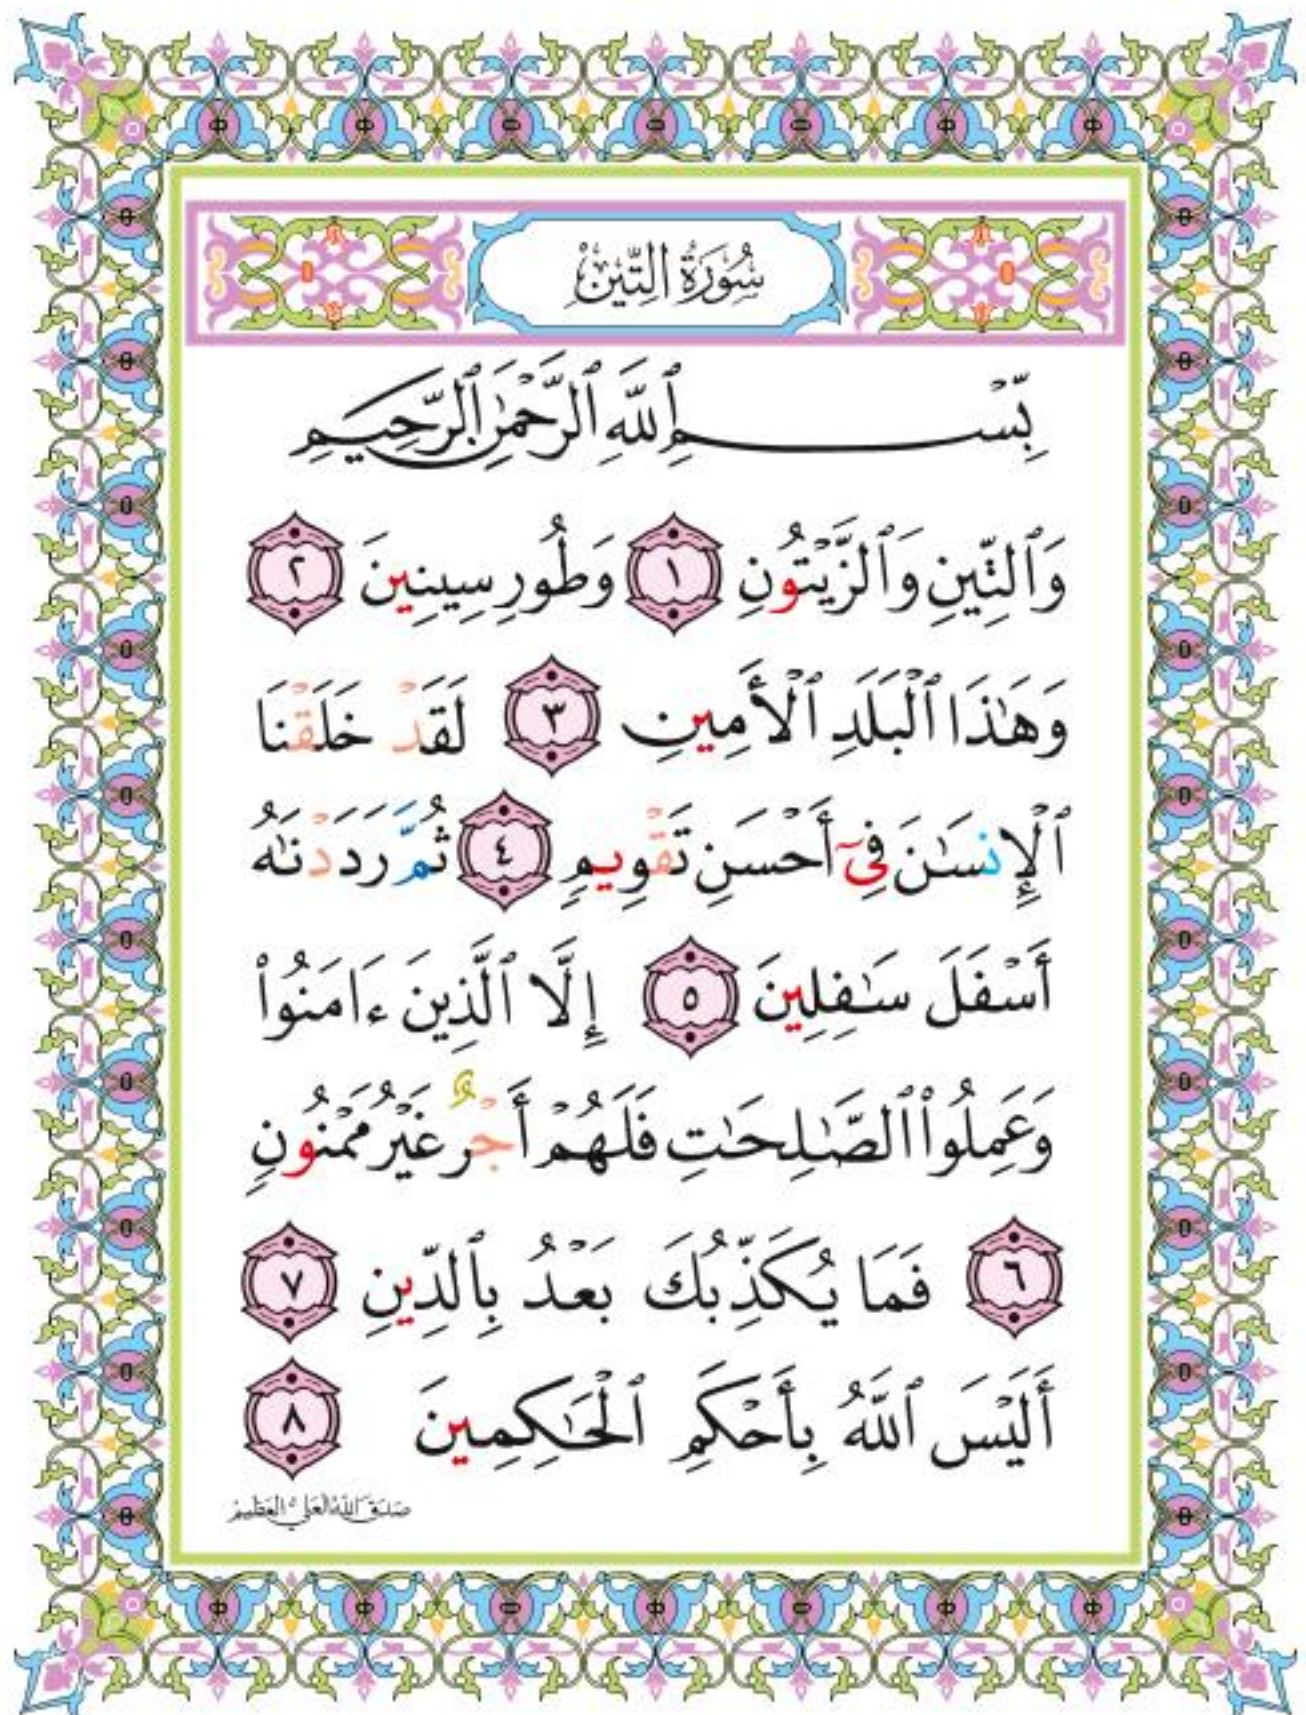 سُورَةُ التِّينِ
بِّسْمِ ٱللَّهِ ٱلرَّحْمَٰنِ ٱلرَّحِيمِ
وَٱلتِّينِ وَٱلزَّيْتُونِ ١ وَطُورِ سِينِينَ ٢
وَهَٰذَا ٱلْبَلَدِ ٱلْأَمِينِ ٣ لَقَدْ خَلَقْنَا
ٱلْإِنسَٰنَ فِىٓ أَحْسَنِ تَقْوِيمٍ ٤ ثُمَّ رَدَدْنَٰهُ
أَسْفَلَ سَٰفِلِينَ ٥ إِلَّا ٱلَّذِينَ ءَامَنُوا۟
وَعَمِلُوا۟ ٱلصَّٰلِحَٰتِ فَلَهُمْ أَجْرٌ غَيْرُ مَمْنُونٍ
٦ فَمَا يُكَذِّبُكَ بَعْدُ بِٱلدِّينِ ٧
أَلَيْسَ ٱللَّهُ بِأَحْكَمِ ٱلْحَٰكِمِينَ ٨
صدق الله العلي العظيم